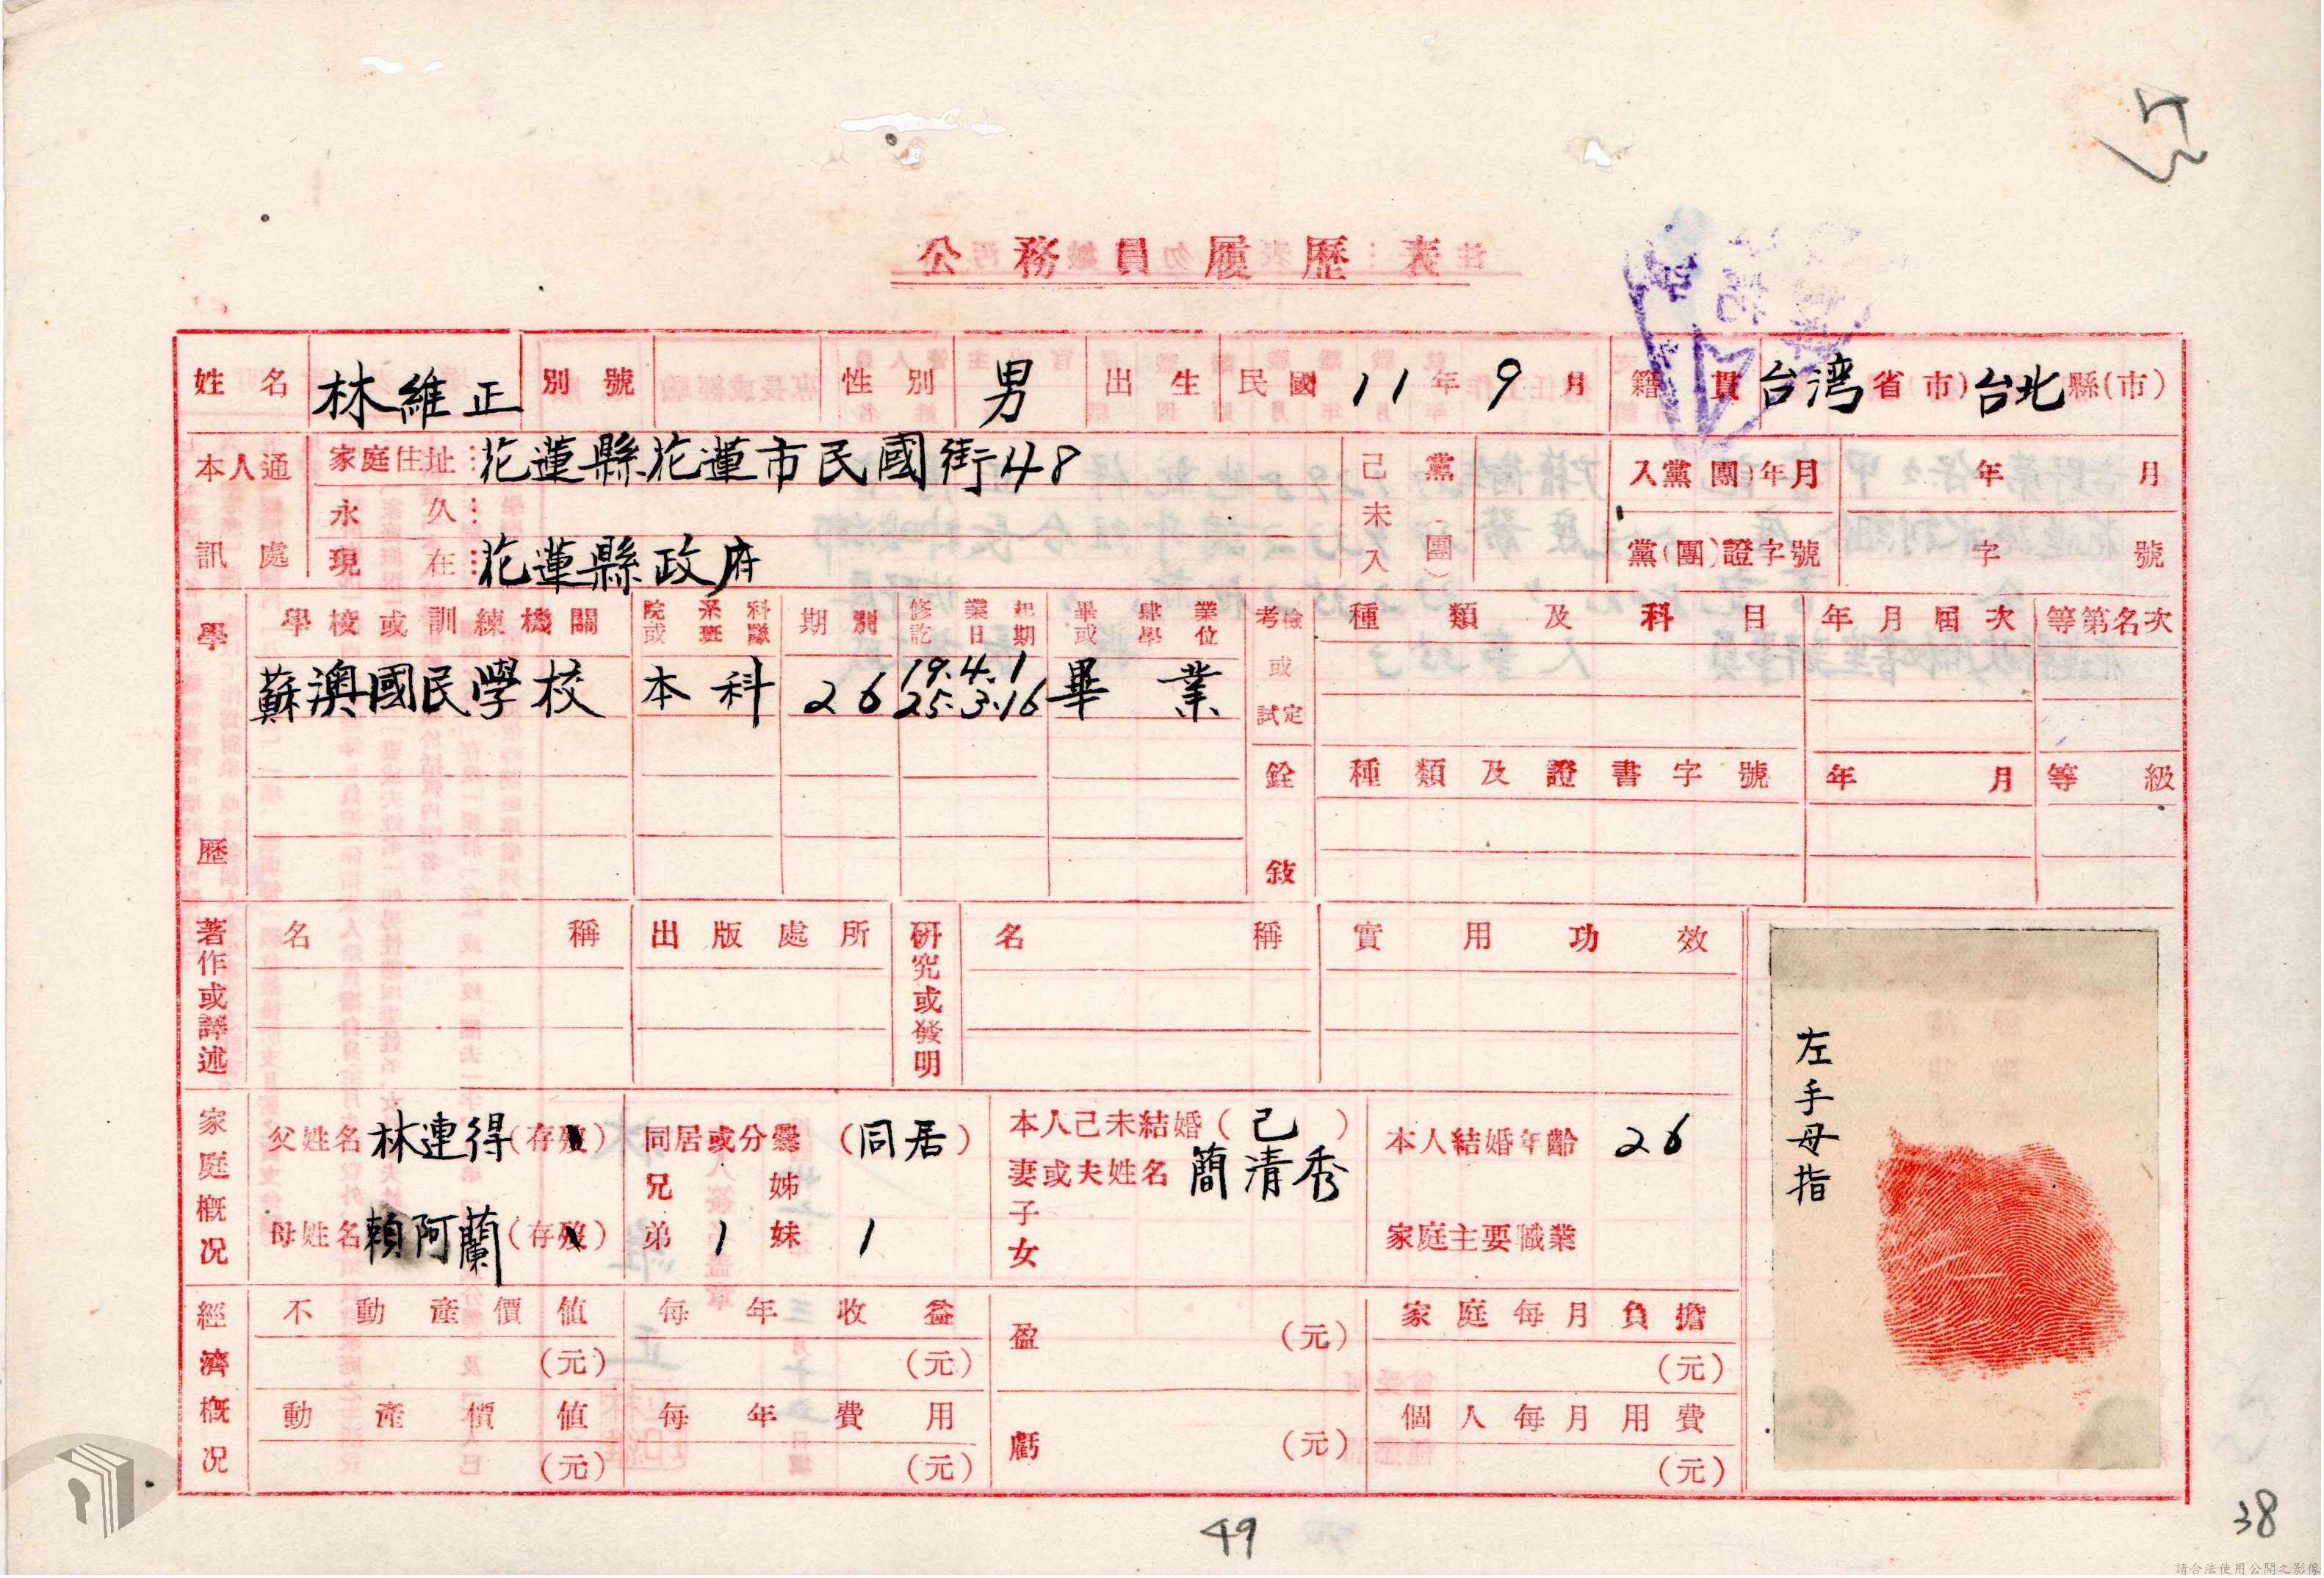 公務員履歷表
姓名 林維正 別號 性別 男 出生 民國 11年9月 籍貫 台湾省(市)台北縣(市)
本人通訊處 家庭住址:花蓮縣花蓮市民國街48
永久:
現在:花蓮縣政府
己未入黨(團) 入黨(團)年月 年 月
黨(團)證字號 字 號
學歷 學校或訓練機關 院系科或班隊 期別 修業起訖日期 畢肄業或學位
蘇澳國民學校 本科 26 19.4.1 25.3.16 畢業
考試或檢定 種類及科目 年月屆次 等第名次
銓敍 種類及證書字號 年月 等級
著作或譯述 名稱 出版處所 研究或發明 名稱 實用功效
家庭概況 父姓名 林連得(存歿) 同居或分爨(同居) 本人己未結婚(己) 本人結婚年齡 26
妻或夫姓名 簡清秀
母姓名 賴阿蘭(存歿) 兄弟 1 姊妹 1 子女 家庭主要職業
左手母指
經濟概況 不動產價值 (元) 每年收益 (元) 盈 (元) 家庭每月負擔 (元)
動產價值 (元) 每年費用 (元) 虧 (元) 個人每月用費 (元)
49
38
請合法使用公開之影像